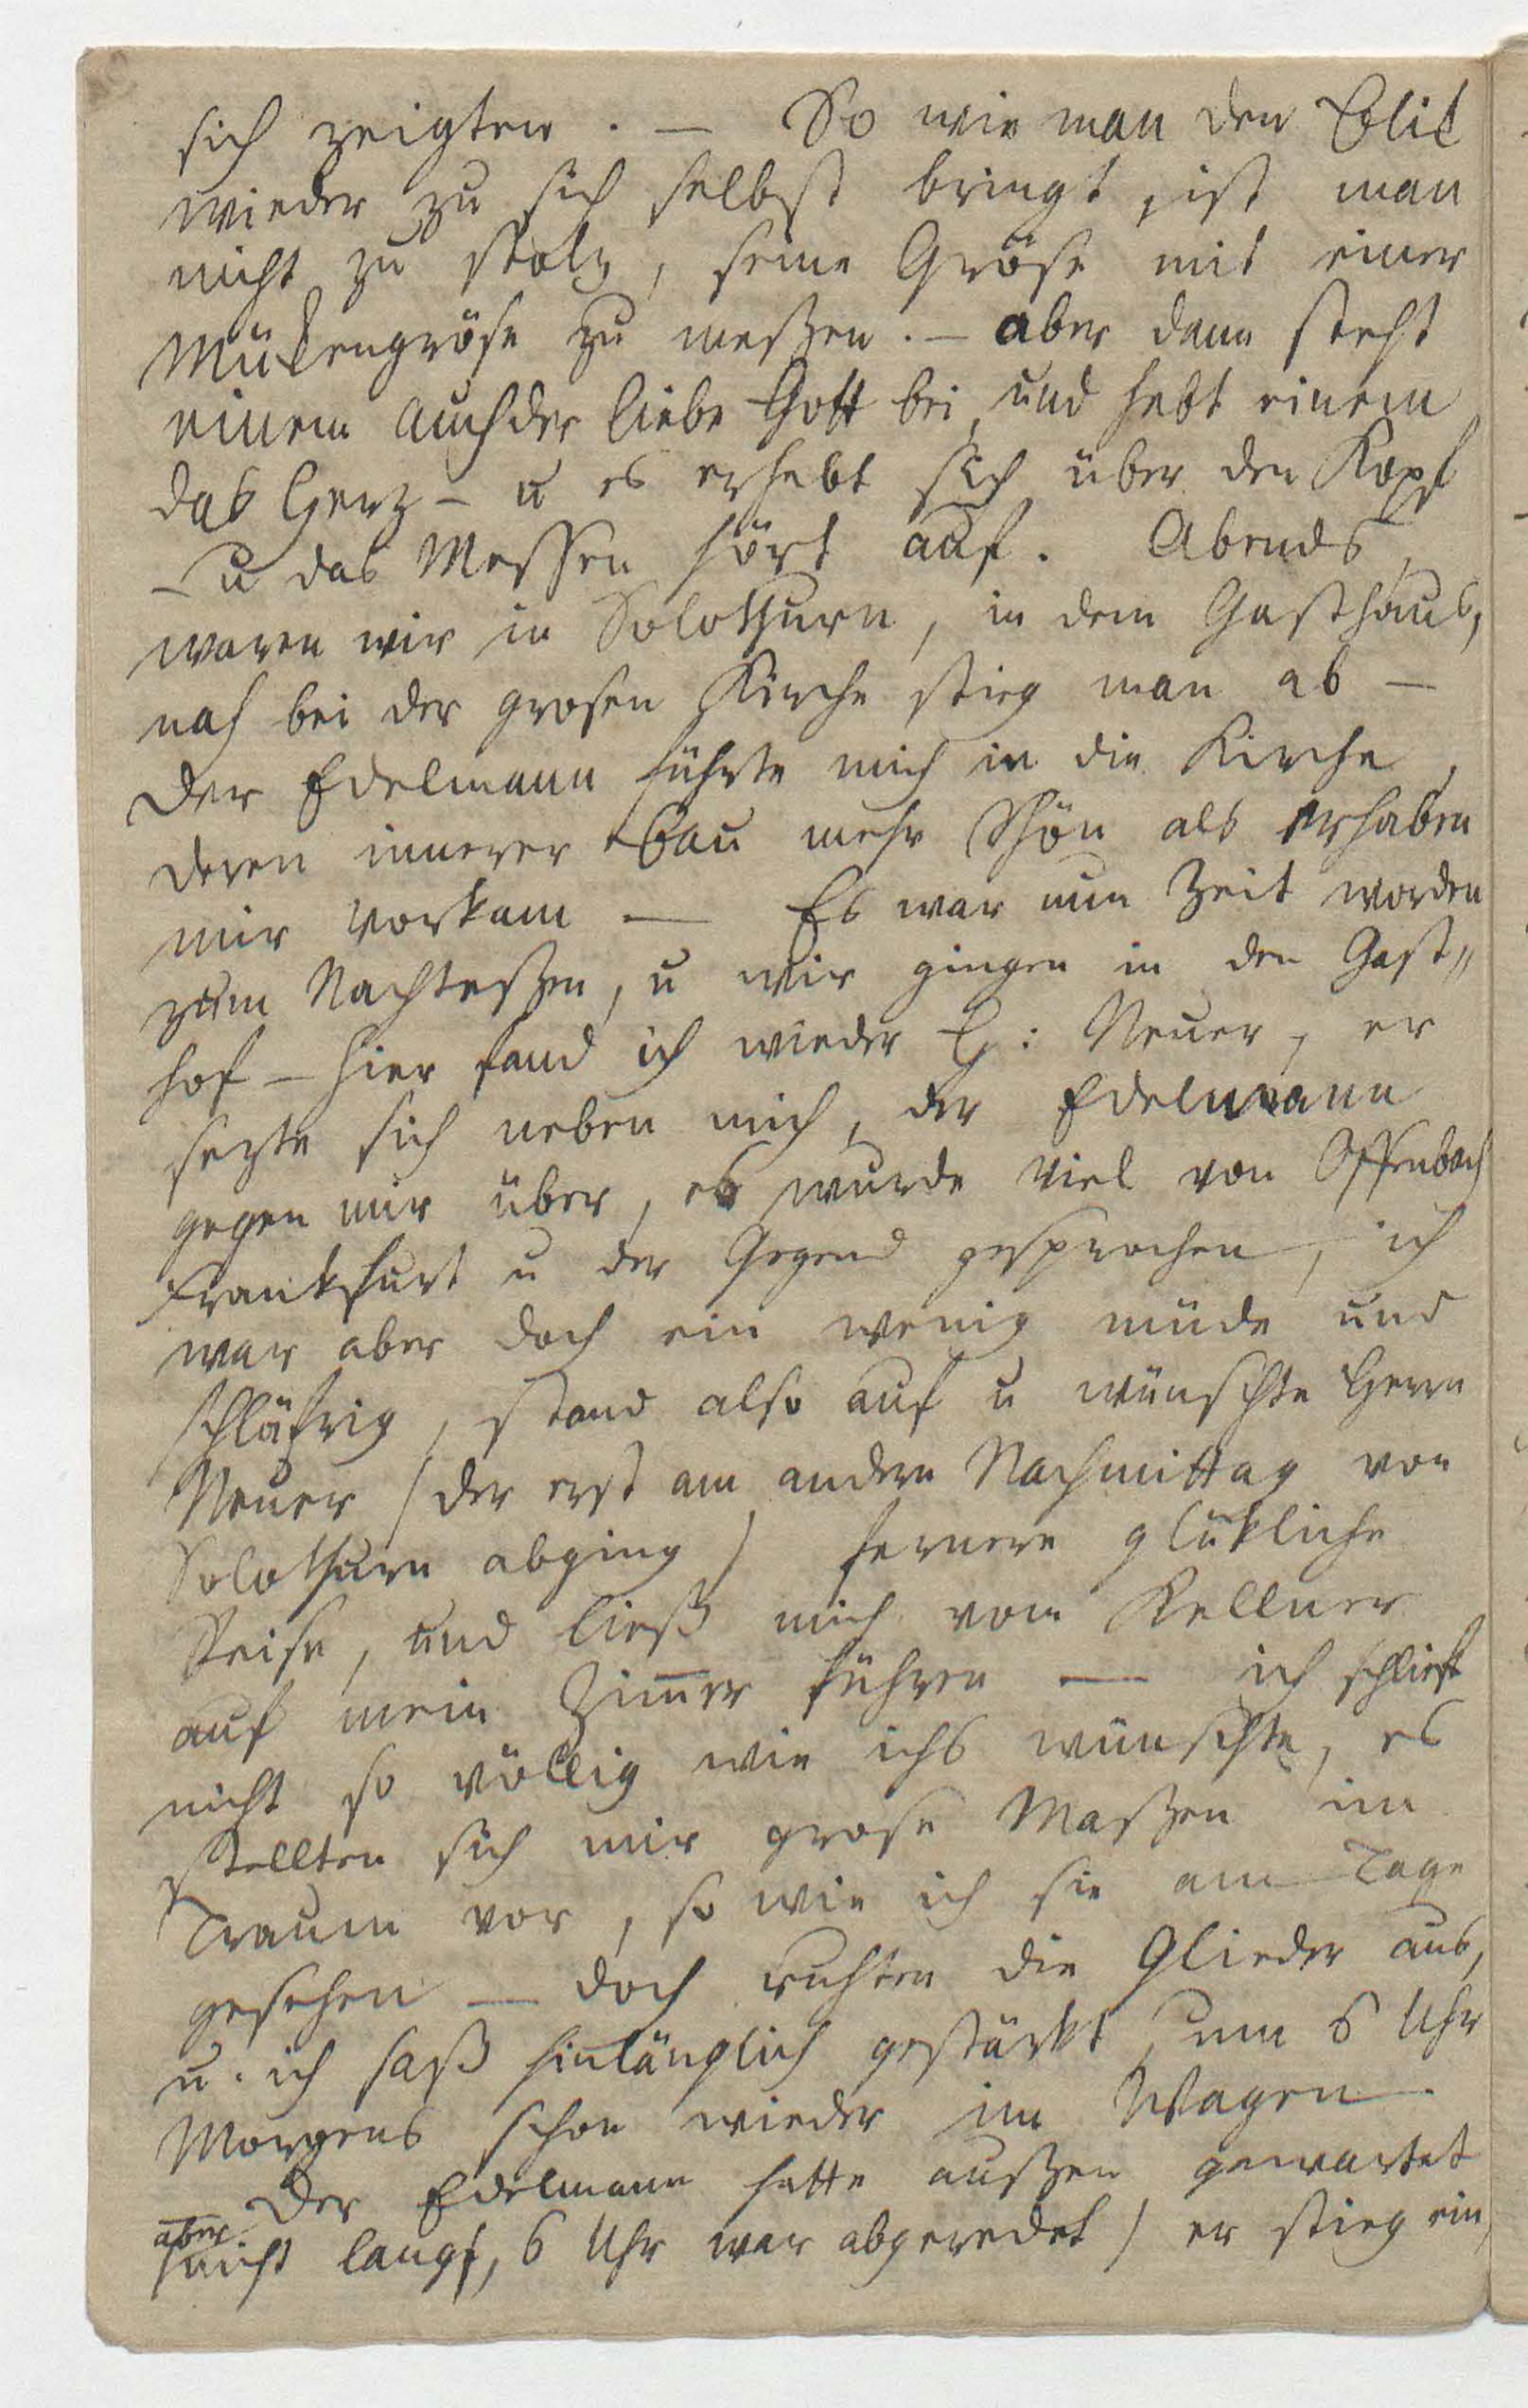 sich zeigten. — So wie man den Blik
wieder zu sich selbst bringt, ist man
nicht zu stolz, seine Gröse mit einer
Mükengröse zu meßen. — aber dann steht
einem auch der liebe Gott bei, und hebt einem
das Herz — u es erhebt sich über den Kopf
— u das Messen hört auf. Abends
waren wir in Solothurn, in dem Gasthaus,
nah bei der grosen Kirche stieg man ab —
der Edelmann führte mich in die Kirche,
deren innerer Bau mehr schön als erhaben
mir vorkam — Es war nun Zeit worden
zum Nachteßen, u wir gingen in den Gast„
hof — hier fand ich wieder H: Neuer, er
sezte sich neben mich, der Edelmann
gegen mir über, es wurde viel von Offenbach
Frankfurt u der Gegend gesprochen, ich
war aber doch ein wenig müde und
schläfrig, stand also auf u wünschte Herrn
Neuer / der erst am andern Nachmittag von
Solothurn abging / fernere glükliche
Reise, und ließ mich vom Kellner
auf mein Zim̅er führen — ich schlief
nicht so völlig wie ichs wünschte, es
stellten sich mir grose Maßen im
Traum vor, so wie ich sie am Tage
gesehen — doch ruhten die Glieder aus,
u. ich saß hinlänglich gestärkt, um 6 Uhr
Morgens schon wieder im Wagen.
Der Edelmann hatte außen gewartet
aber
/ nicht lang, 6 Uhr war abgeredet / er stieg ein,